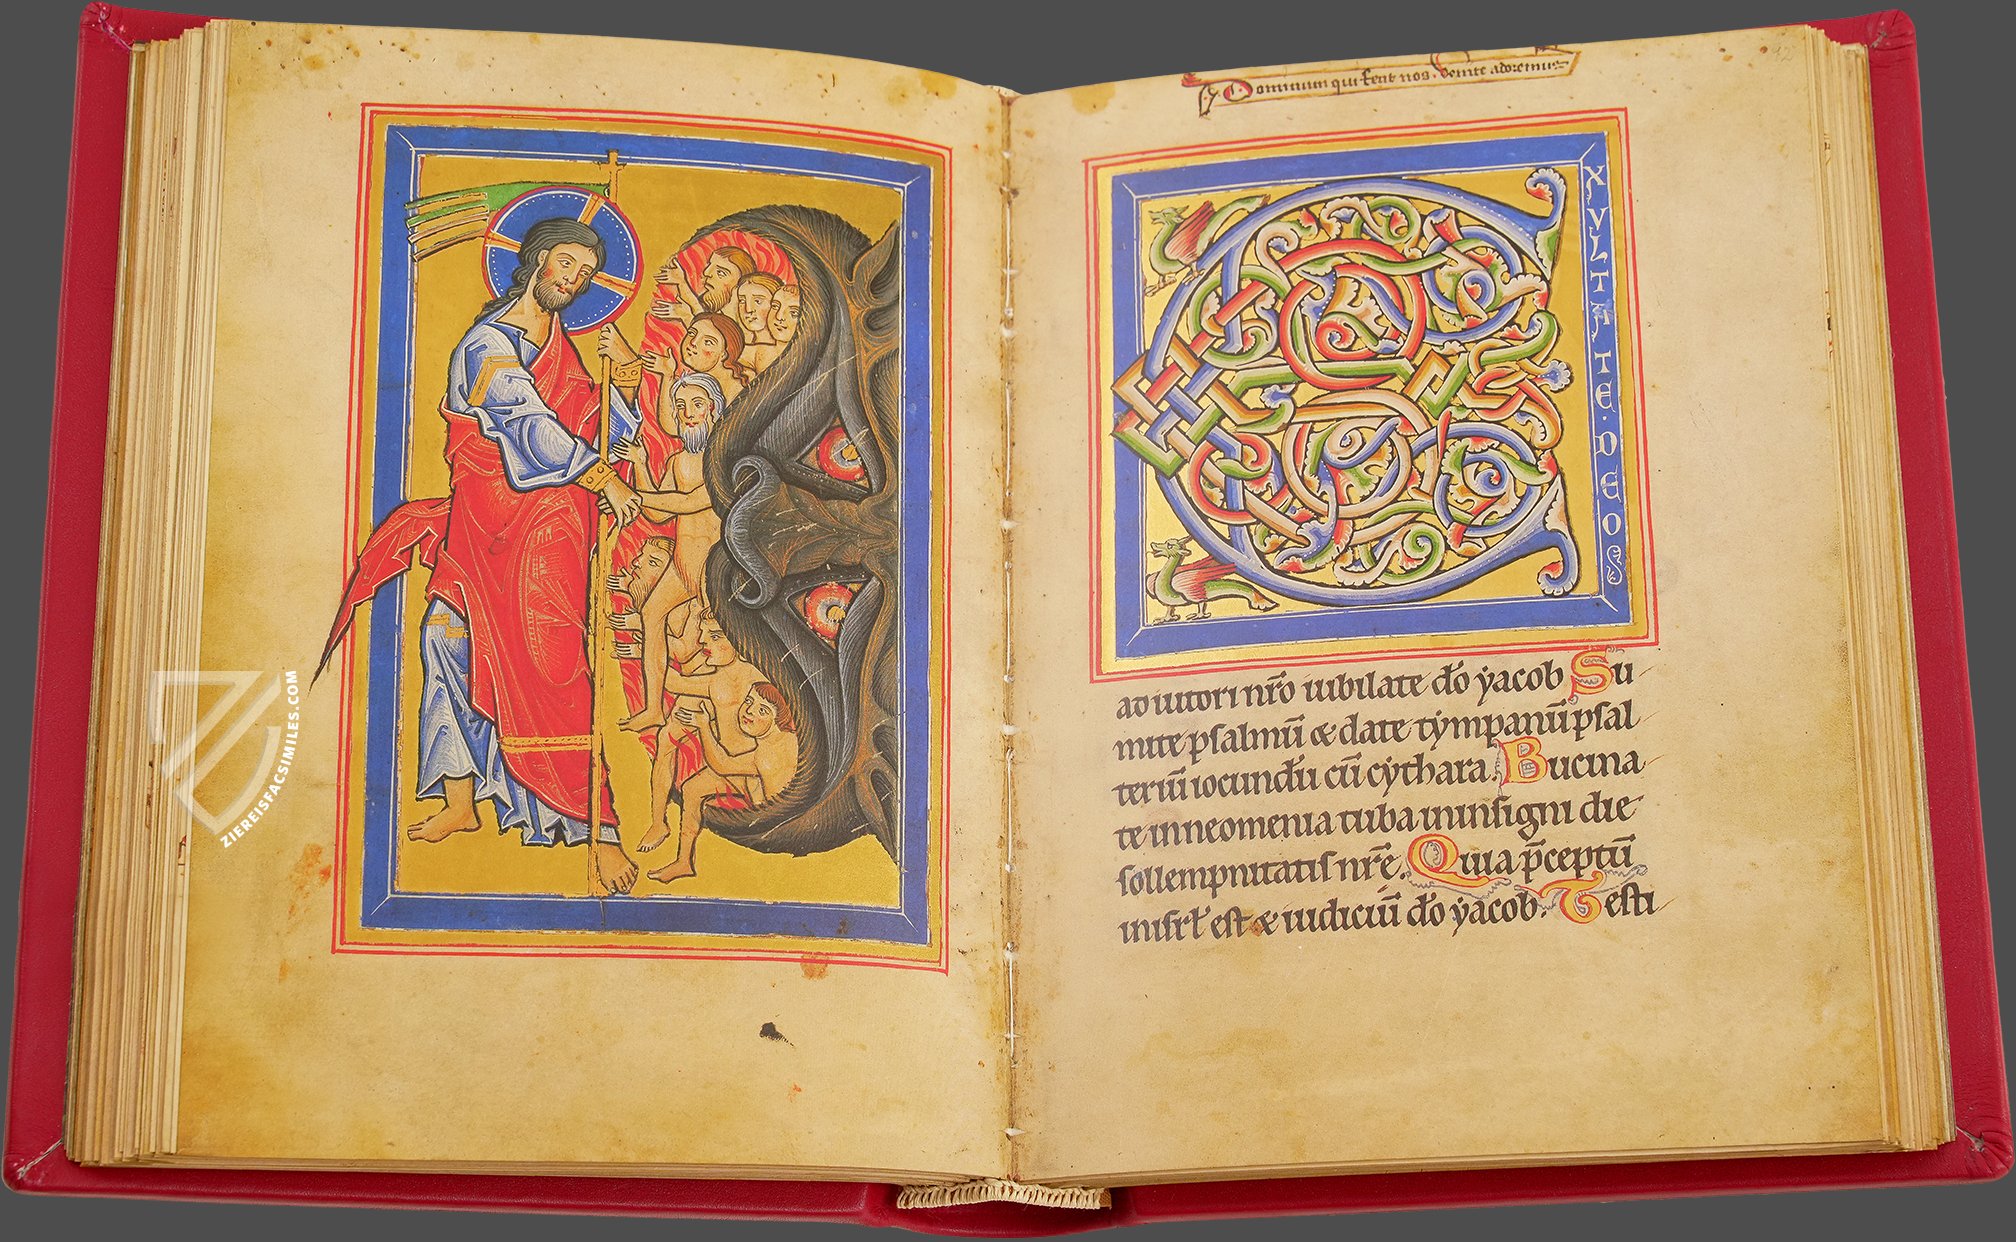 ZIEREISFACSIMILES.COM
Dominum qui fecit nos. Venite adoremus
EXVLTATE. DEO
adiutori nr̄o iubilate d̄o ẏacob Su
mite psalmū & date tẏmpanū psal
teriū iocundū cū cẏthara. Bucina
te in neomenia tuba in insigni die
sollempnitatis nr̄e. Quia p̄ceptū
in isrl̄ est & iudiciū d̄o ẏacob. Testi